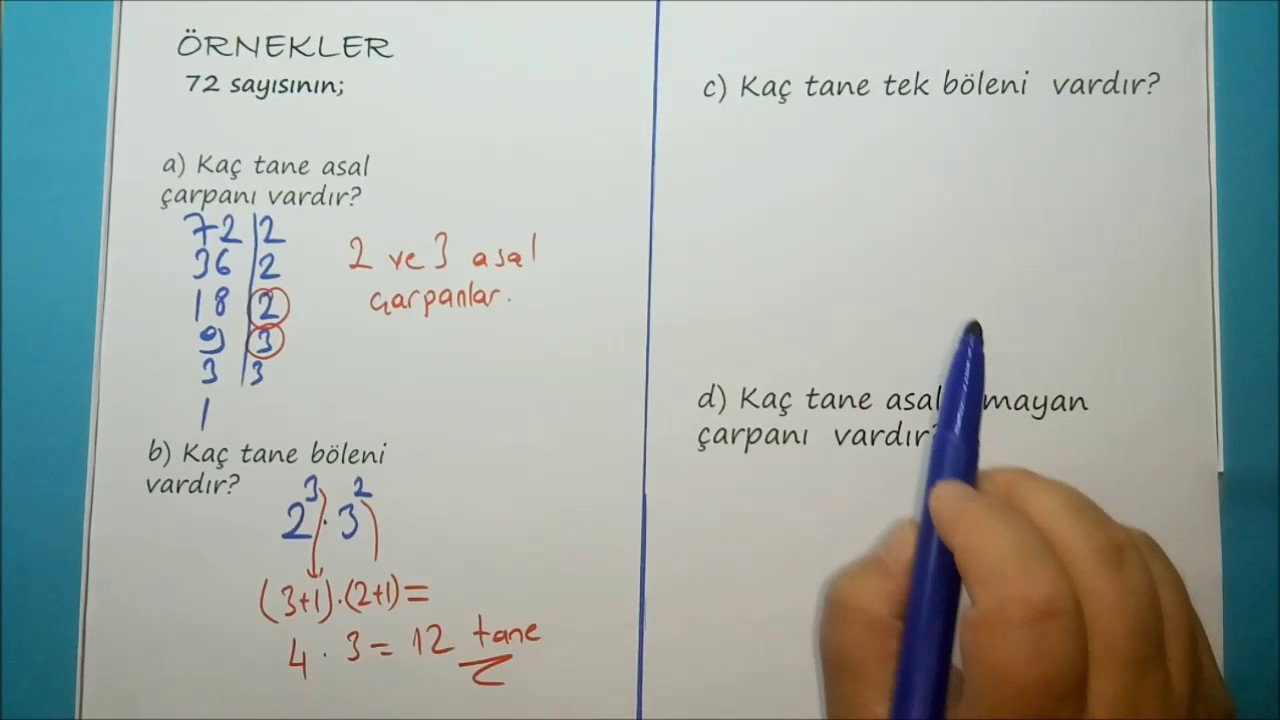 ÖRNEKLER
72 sayısının;
a) Kaç tane asal
çarpanı vardır?
72 | 2
36 | 2
18 | 2
9 | 3
3 | 3
1
2 ve 3 asal
çarpanlar.
b) Kaç tane böleni
vardır?
2³ · 3²
(3+1)·(2+1)=
4 · 3 = 12 tane
c) Kaç tane tek böleni vardır?
d) Kaç tane asal mayan
çarpanı vardır?